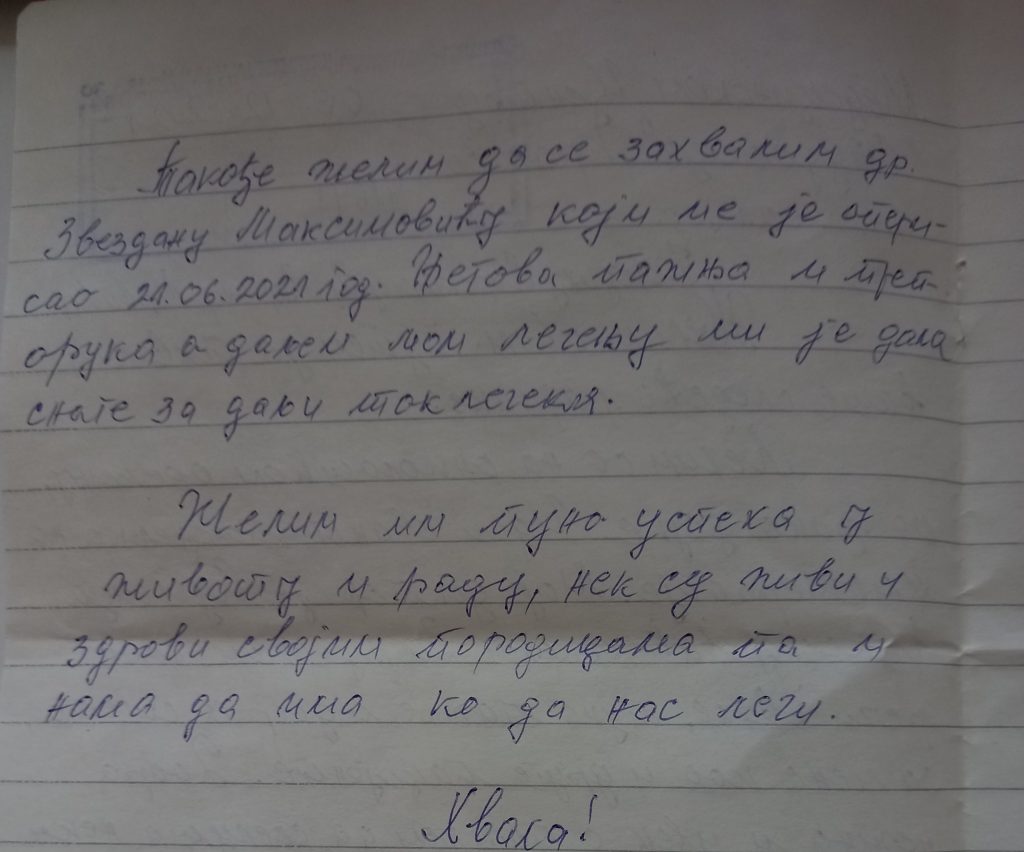 Такође желим да се захвалим др.
Звездану Максимовићу који ме је опери-
сао 21.06.2021 год. Његова пажња и преп-
орука о даљем мом лечењу ми је дала
снаге за даљи ток лечења.
Желим им пуно успеха у
животу и раду, нек су живи и
здрови својим породицама па и
нама да има ко да нас лечи.
Хвала!